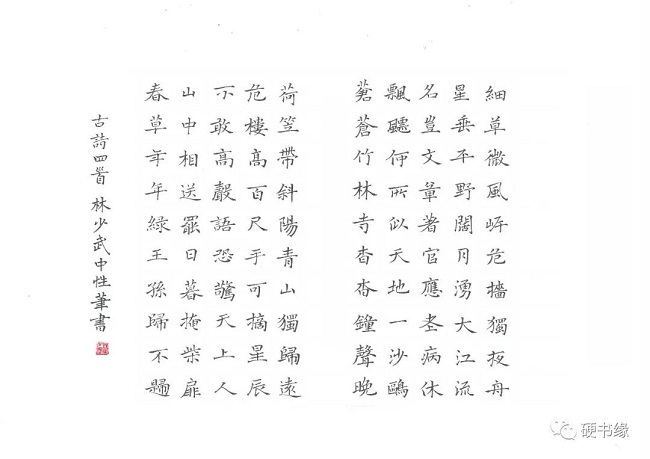 細草微風岸危檣獨夜舟
星垂平野闊月湧大江流
名豈文章著官應老病休
飄飄何所似天地一沙鷗
蒼蒼竹林寺杳杳鐘聲晚
荷笠帶斜陽青山獨歸遠
危樓高百尺手可摘星辰
不敢高聲語恐驚天上人
山中相送罷日暮掩柴扉
春草年年綠王孫歸不歸
古詩四首 林少武中性筆書
硬书缘